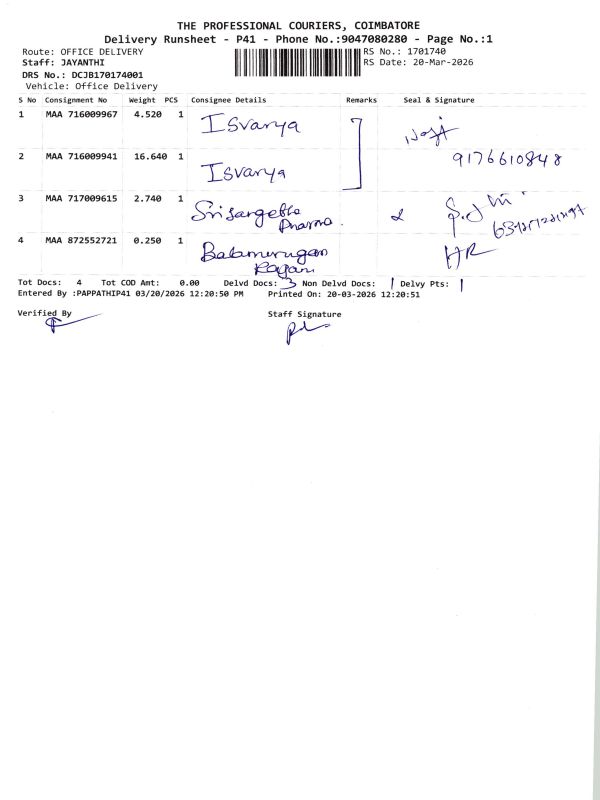 THE PROFESSIONAL COURIERS, COIMBATORE
Delivery Runsheet - P41 - Phone No.:9047080280 - Page No.:1
Route: OFFICE DELIVERY RS No.: 1701740
Staff: JAYANTHI RS Date: 20-Mar-2026
DRS No.: DCJB170174001
Vehicle: Office Delivery
S No Consignment No Weight PCS Consignee Details Remarks Seal & Signature
1 MAA 716009967 4.520 1 Isvarya
9176610848
2 MAA 716009941 16.640 1 Isvarya
3 MAA 717009615 2.740 1 Pharma
4 MAA 872552721 0.250 1 Balamurugan HR
Tot Docs: 4 Tot COD Amt: 0.00 Delvd Docs: 3 Non Delvd Docs: 1 Delvy Pts: 1
Entered By :PAPPATHIP41 03/20/2026 12:20:50 PM Printed On: 20-03-2026 12:20:51
Verified By Staff Signature